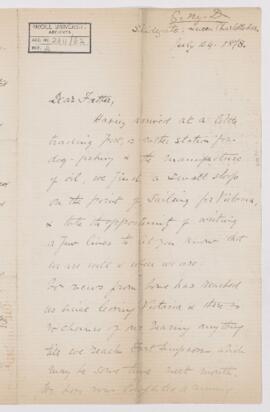 McGILL UNIVERSITY
ARCHIVES
ACC. NO.
REF.
G. M. D
Skidegate, Queen Charlotte Isds.
July 24. 1878.
Dear Father,
Having arrived at a little
trading post, or rather station for
dog-fishing & the manufacture
of oil, we find a small sloop
on the point of sailing for Victoria,
& take the opportunity of writing
a few lines to let you know that
we are well & where we are.
No news from home has reached
us since leaving Victoria & there is
no chance of our hearing anything
till we reach Fort Simpson which
may be some time next month.
We have now